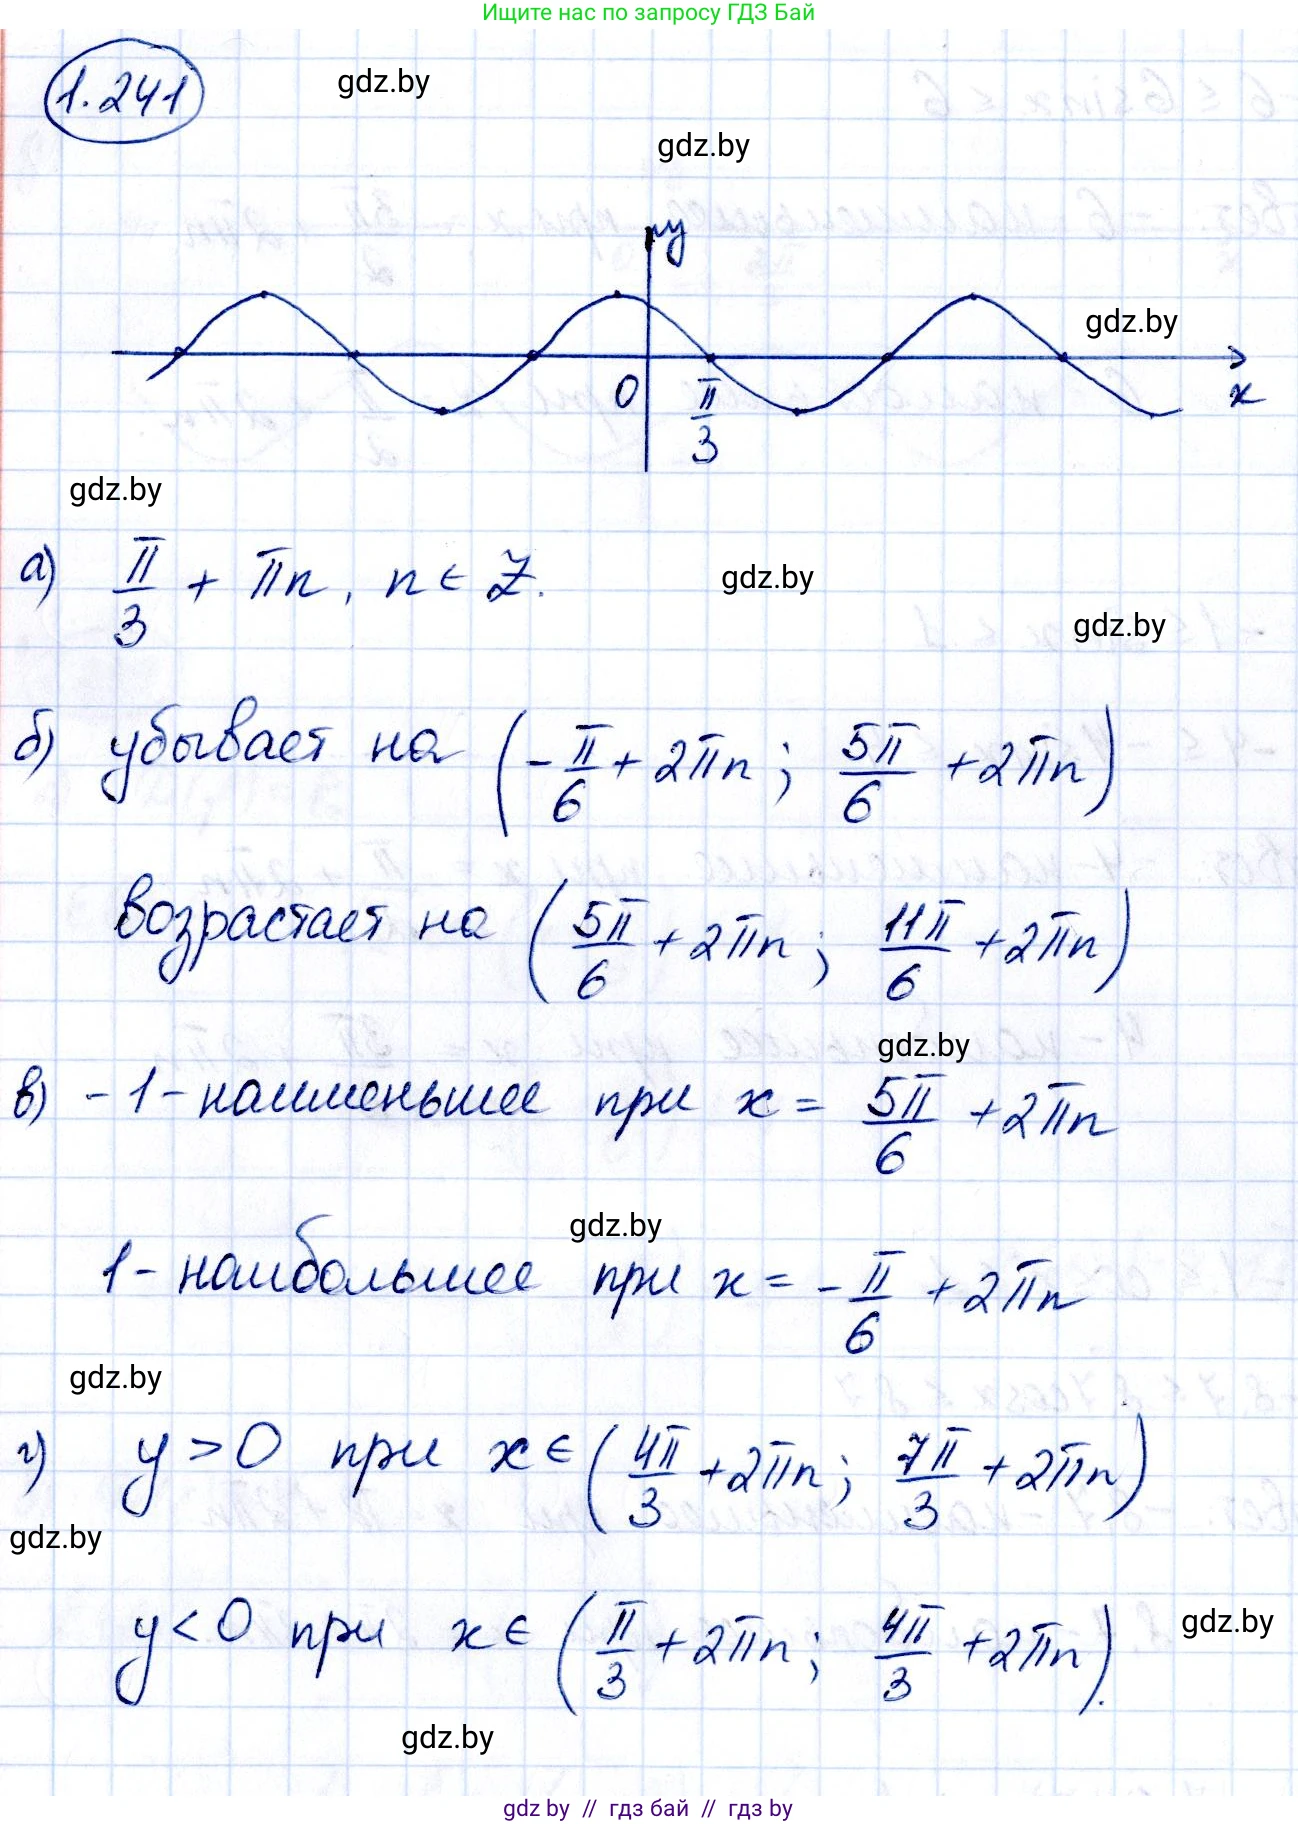 Ищите нас по запросу ГДЗ Бай
1.241
gdz.by
gdz.by
y
gdz.by
0 π/3 x
gdz.by
а) π/3 + πn, n ∈ Z.
gdz.by
gdz.by
б) убывает на (-π/6 + 2πn; 5π/6 + 2πn)
возрастает на (5π/6 + 2πn; 11π/6 + 2πn)
gdz.by
в) -1 - наименьшее при x = 5π/6 + 2πn
gdz.by
1 - наибольшее при x = -π/6 + 2πn
gdz.by
г) y > 0 при x ∈ (4π/3 + 2πn; 7π/3 + 2πn)
gdz.by
y < 0 при x ∈ (π/3 + 2πn; 4π/3 + 2πn).
gdz.by
gdz.by
gdz by // гдз бай // гдз by